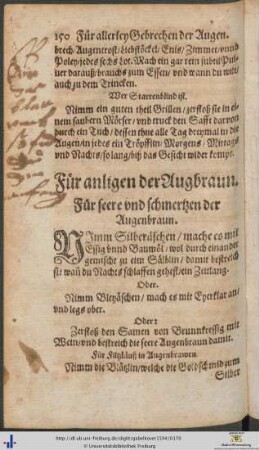 150 Für allerley Gebrechen der Augen.
brech Augentrost/ Liebstöckel/ Enis/ Zimmet/ vnnd
Poley/ jedes sechs Lot. Mach ein gar rein subtil Pul-
uer darauß/ brauchs zum Essen/ vnd wann du wilt/
auch zu dem Trincken.
Wer Starrenblind ist.
Nimm ein guten theil Grillen/ zerstoß sie in ei-
nem saubern Mörser/ vnd truck den Safft daruon
durch ein Tuch/ dessen thue alle Tag dreymal in die
Augen/ in jedes ein Tröpfflin/ Morgens/ Mittags
vnd Nachts/ so lang/ biß das Gesicht wider kompt.
Für anligen der Augbraun.
Für seere vnd schmertzen der
Augenbraun.
NImm Silberäschen/ mache es mit
Essig vnnd Bawöl/ wol durch einander
gemischt zu ein Sälblin/ damit bestreich
sie wañ du Nachts schlaffen gehest/ ein Zeitlang.
Oder.
Nimm Bleyäschen/ mach es mit Eyerklar an/
vnd legs ober.
Oder:
Zerstoß den Samen von Brunnkressig mit
Wein/ vnd bestreich die seere Augenbraun damit.
Für Fitzläuß in Augenbrawen
Nimm die Blätzlin/ welche die Goldschmid zum
Silber
http://dl.ub.uni-freiburg.de/diglit/gabelkover1594/0170
© Universitätsbibliothek Freiburg